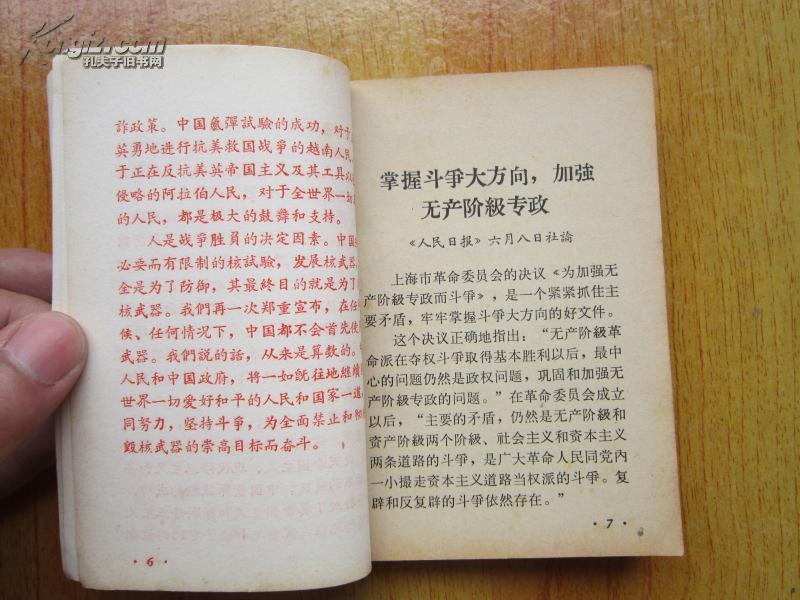 Kongfz.com
孔夫子旧书网
詐政策。中国氫彈試驗的成功，对于
英勇地进行抗美救国战爭的越南人民，
于正在反抗美英帝国主义及其工具以
侵略的阿拉伯人民，对于全世界一切
的人民，都是极大的鼓舞和支持。
人是战爭胜負的决定因素。中国
必要而有限制的核試驗，发展核武器，
全是为了防御，其最終目的就是为了
核武器。我們再一次郑重宣布，在任
候、任何情况下，中国都不会首先使
武器。我們說的話，从来是算数的。
人民和中国政府，将一如既往地继續
世界一切爱好和平的人民和国家一道
同努力，坚持斗爭，为全面禁止和
毁核武器的崇高目标而奋斗。
·6·
掌握斗爭大方向，加強
无产阶級专政
《人民日报》六月八日社論
上海市革命委员会的决议《为加强无
产阶級专政而斗爭》，是一个紧紧抓住主
要矛盾，牢牢掌握斗爭大方向的好文件。
这个决议正确地指出：“无产阶級革
命派在夺权斗爭取得基本胜利以后，最中
心的问题仍然是政权问题，巩固和加强无
产阶級专政的问题。”在革命委员会成立
以后，“主要的矛盾，仍然是无产阶級和
资产阶級两个阶級、社会主义和资本主义
两条道路的斗爭，是广大革命人民同党内
一小撮走资本主义道路当权派的斗爭。复
辟和反复辟的斗爭依然存在。”
·7·